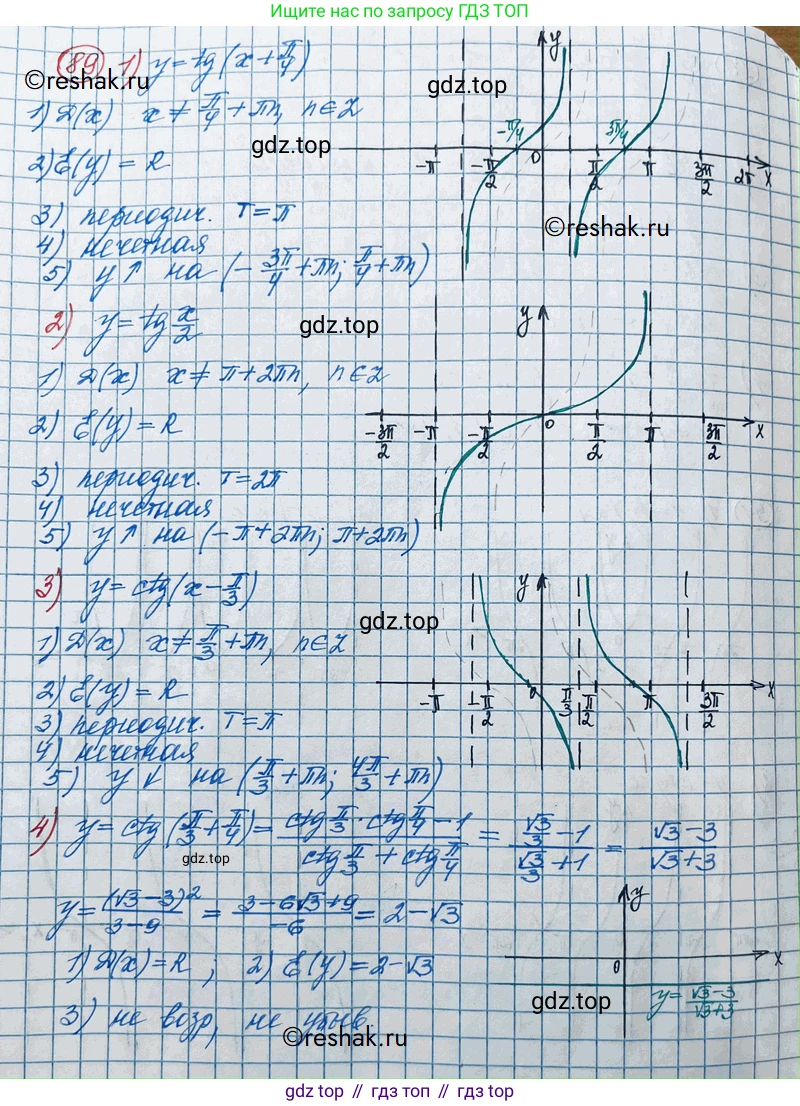 Ищите нас по запросу ГДЗ ТОП
89 1) y = tg(x + π/4)
©reshak.ru
gdz.top
1) D(x) x ≠ π/4 + πn, n ∈ Z
gdz.top
2) E(y) = R
3) периодич. T = π
4) нечетная
5) y↑ на (-3π/4 + πn; π/4 + πn)
y
-π/4 3π/4
-π -π/2 0 π/2 π 3π/2 2π x
©reshak.ru
2) y = tg x/2
gdz.top
1) D(x) x ≠ π + 2πn, n ∈ Z
2) E(y) = R
3) периодич. T = 2π
4) нечетная
5) y↑ на (-π + 2πn; π + 2πn)
y
-3π/2 -π -π/2 0 π/2 π 3π/2 x
3) y = ctg(x - π/3)
gdz.top
1) D(x) x ≠ π/3 + πn, n ∈ Z
2) E(y) = R
3) периодич. T = π
4) нечетная
5) y↓ на (π/3 + πn; 4π/3 + πn)
y
-π -π/2 0 π/3 π/2 π 3π/2 x
4) y = ctg(π/3 + π/4) = (ctg π/3 · ctg π/4 - 1)/(ctg π/3 + ctg π/4) = (√3/3 - 1)/(√3/3 + 1) = (√3 - 3)/(√3 + 3)
gdz.top
y = (√3 - 3)²/(3 - 9) = (3 - 6√3 + 9)/(-6) = 2 - √3
1) D(x) = R ; 2) E(y) = 2 - √3
3) не возр, не убыв
©reshak.ru
y
0 x
gdz.top
y = (√3 - 3)/(√3 + 3)
gdz top // гдз топ // gdz top